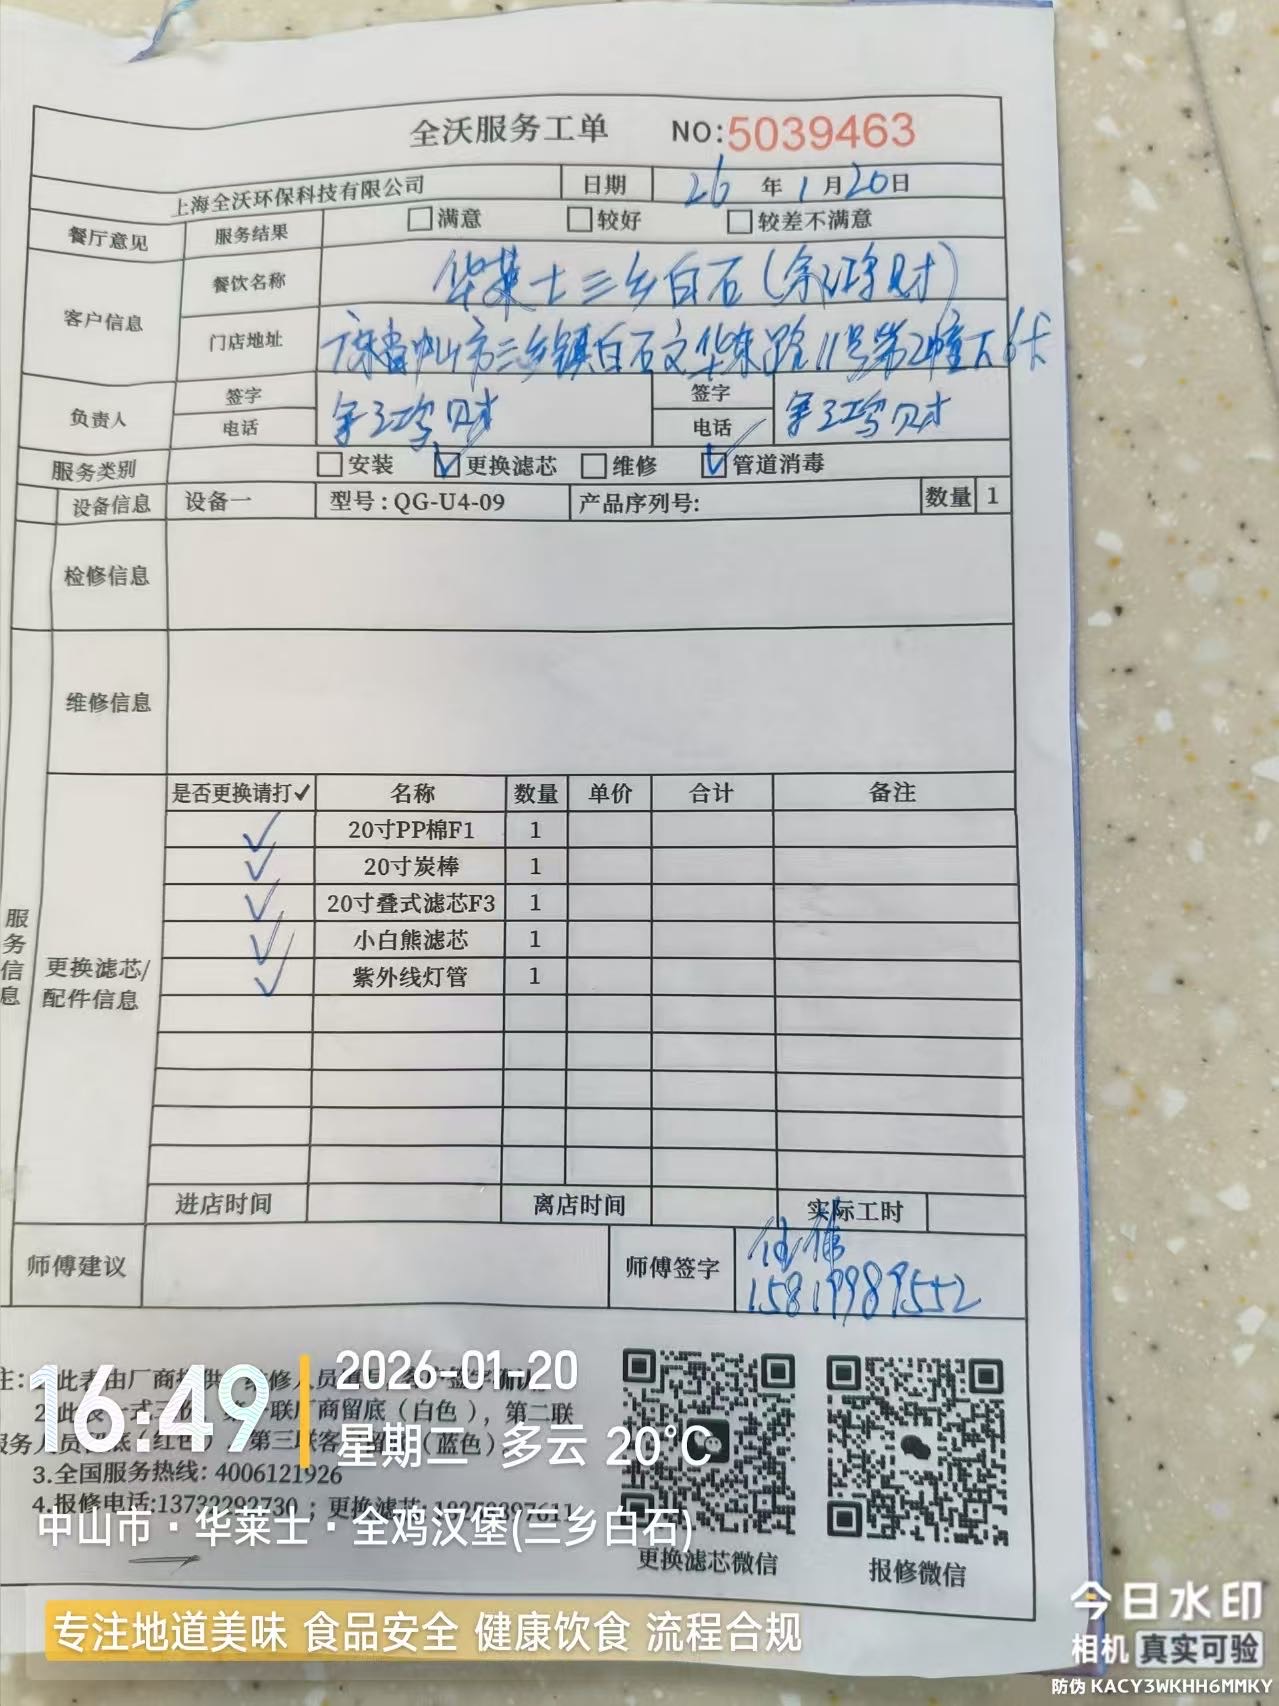 全沃服务工单 NO:5039463
上海全沃环保科技有限公司 日期 26年1月20日
餐厅意见 服务结果 满意 较好 较差不满意
客户信息 餐饮名称 华莱士三乡白石(余鸿财)
门店地址 广东省中山市三乡镇白石文华东路11号第2幢A6卡
负责人 签字 签字
电话 电话
服务类别 安装 ✓更换滤芯 维修 ✓管道消毒
设备信息 设备一 型号:QG-U4-09 产品序列号: 数量 1
检修信息
维修信息
服务信息
更换滤芯/配件信息
是否更换请打✓ 名称 数量 单价 合计 备注
✓ 20寸PP棉F1 1
✓ 20寸炭棒 1
✓ 20寸叠式滤芯F3 1
✓ 小白熊滤芯 1
✓ 紫外线灯管 1
进店时间 离店时间 实际工时
师傅建议 师傅签字
15819989552
注:1.此表由厂商提供,维修人员填写,客户签字确认。
2.此表一式三份,第一联厂商留底(白色),第二联
服务人员留底(红色),第三联客户留底(蓝色)
3.全国服务热线:4006121926
4.报修电话:13732292730;更换滤芯:
更换滤芯微信 报修微信
16:49 2026-01-20
星期二 多云 20℃
中山市·华莱士·全鸡汉堡(三乡白石)
专注地道美味 食品安全 健康饮食 流程合规
今日水印
相机 真实可验
防伪 KACY3WKHH6MMKY